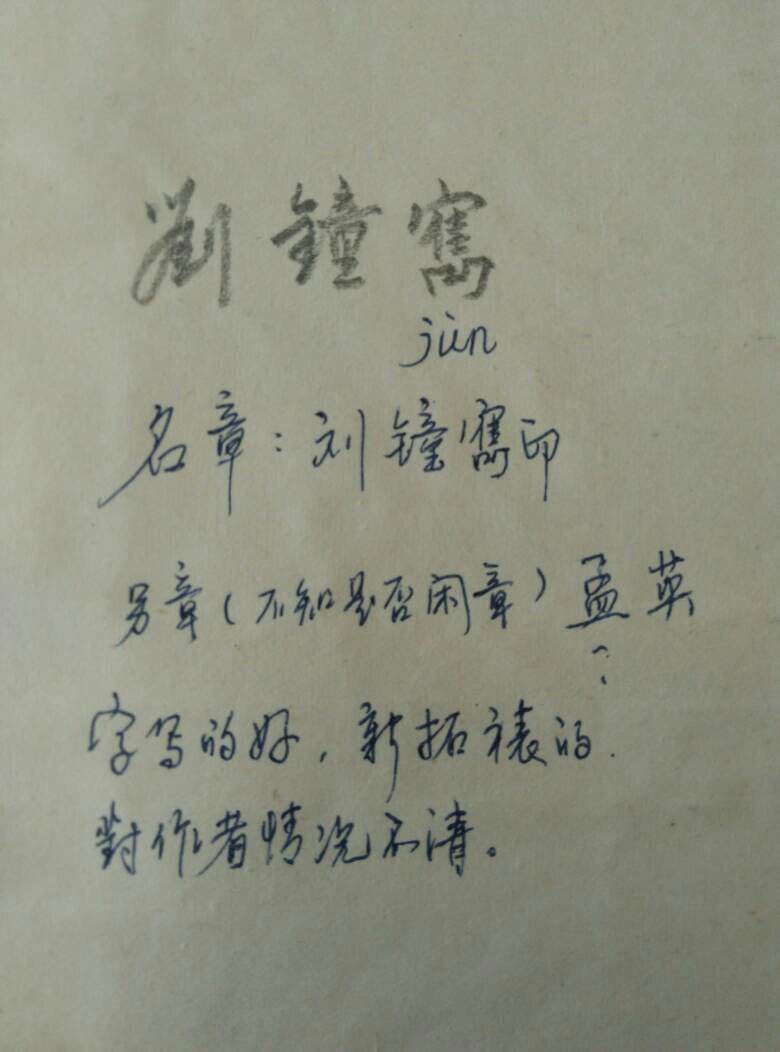 劉鐘寯
jùn
名章：刘鐘寯印
另章（不知是否闲章）孟英
?
字写的好，新拓裱的.
對作者情况不清。